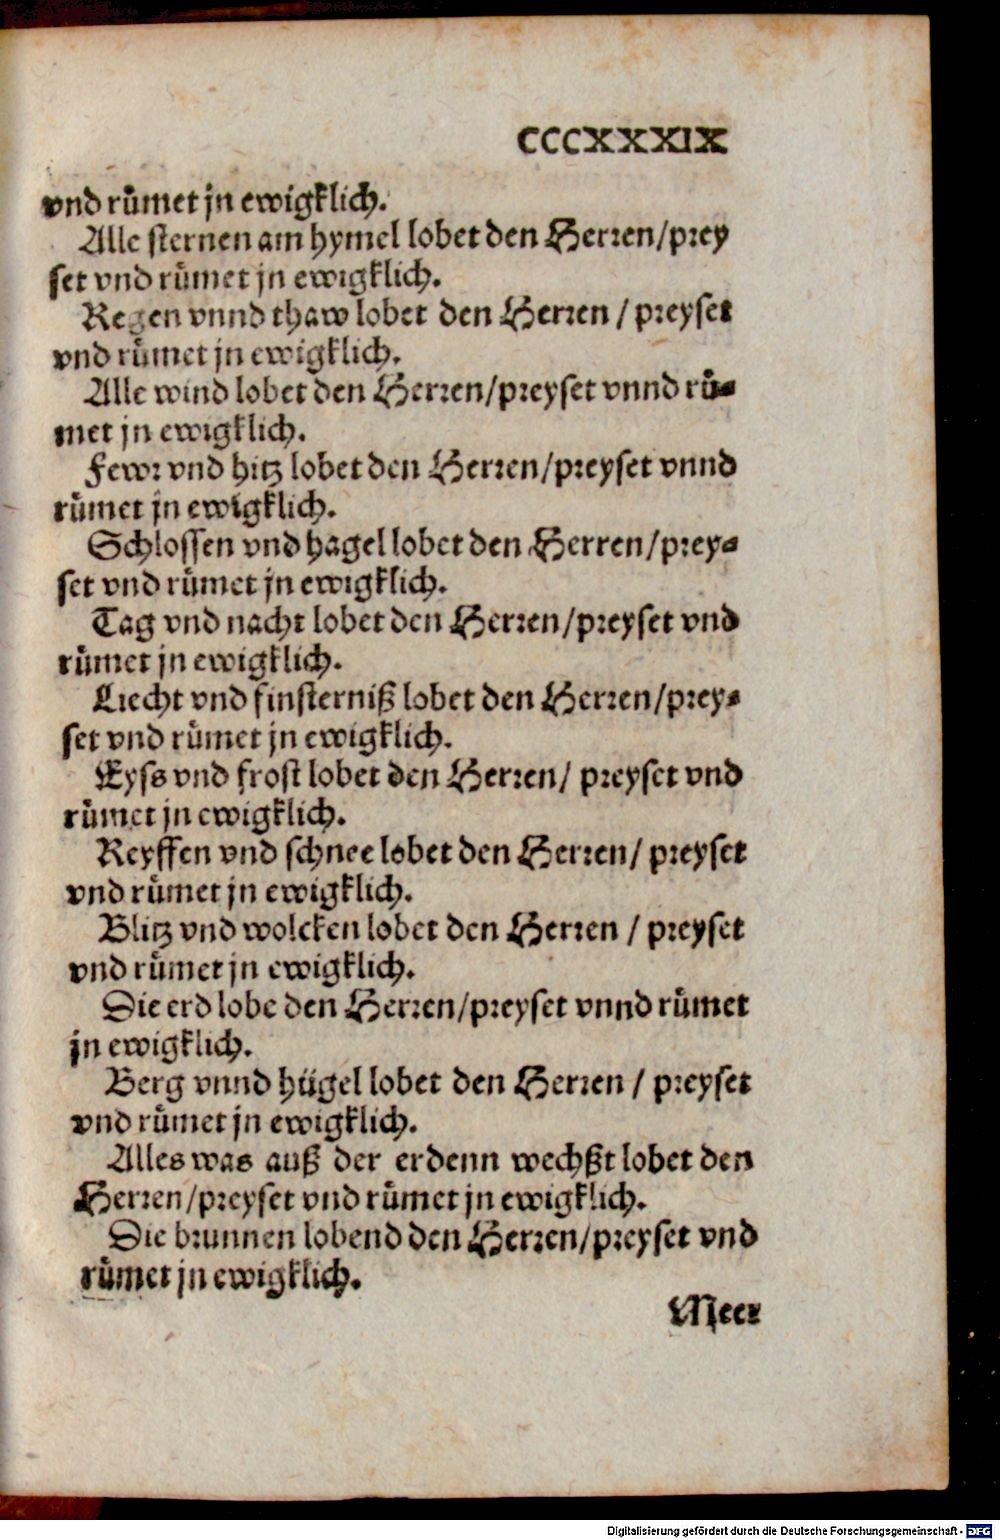 CCCXXXIX
vnd růmet jn ewigklich.
Alle sternen am hymel lobet den Herren/prey
set vnd růmet jn ewigklich.
Regen vnnd thaw lobet den Herren / preyset
vnd růmet jn ewigklich.
Alle wind lobet den Herren/preyset vnnd rů-
met jn ewigklich.
Fewr vnd hitz lobet den Herren/preyset vnnd
růmet jn ewigklich.
Schlossen vnd hagel lobet den Herren/prey-
set vnd růmet jn ewigklich.
Tag vnd nacht lobet den Herren/preyset vnd
růmet jn ewigklich.
Liecht vnd finsterniß lobet den Herren/prey-
set vnd růmet jn ewigklich.
Eyss vnd frost lobet den Herren/ preyset vnd
růmet jn ewigklich.
Reyffen vnd schnee lobet den Herren/ preyset
vnd růmet jn ewigklich.
Blitz vnd wolcken lobet den Herren / preyset
vnd růmet jn ewigklich.
Die erd lobe den Herren/preyset vnnd růmet
jn ewigklich.
Berg vnnd hügel lobet den Herren / preyset
vnd růmet jn ewigklich.
Alles was auß der erdenn wechßt lobet den
Herren/preyset vnd růmet jn ewigklich.
Die brunnen lobend den Herren/preyset vnd
růmet jn ewigklich.
Meer
Digitalisierung gefördert durch die Deutsche Forschungsgemeinschaft - DFG